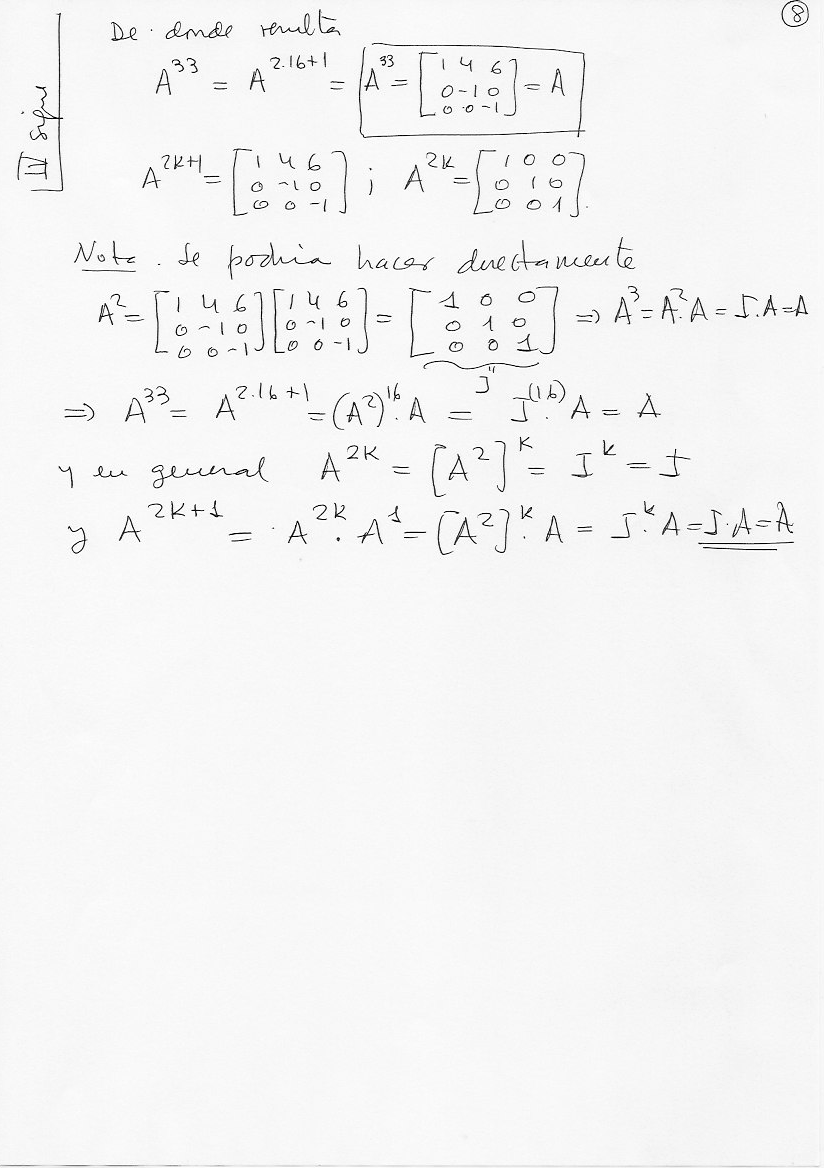 8
II sigue
De donde resulta
A^33 = A^(2·16+1) = A^33 = [1 4 6; 0 -1 0; 0 0 -1] = A
A^(2K+1) = [1 4 6; 0 -1 0; 0 0 -1] ; A^(2K) = [1 0 0; 0 1 0; 0 0 1].
Nota. Se podria hacer directamente
A^2 = [1 4 6; 0 -1 0; 0 0 -1] [1 4 6; 0 -1 0; 0 0 -1] = [1 0 0; 0 1 0; 0 0 1] ⇒ A^3 = A^2·A = I·A = A
" I
⇒ A^33 = A^(2·16+1) = (A^2)^16·A = I^(16)·A = A
y en general A^(2K) = [A^2]^K = I^K = I
y A^(2K+1) = A^(2K)·A^1 = [A^2]^K·A = I^K·A = I·A = A